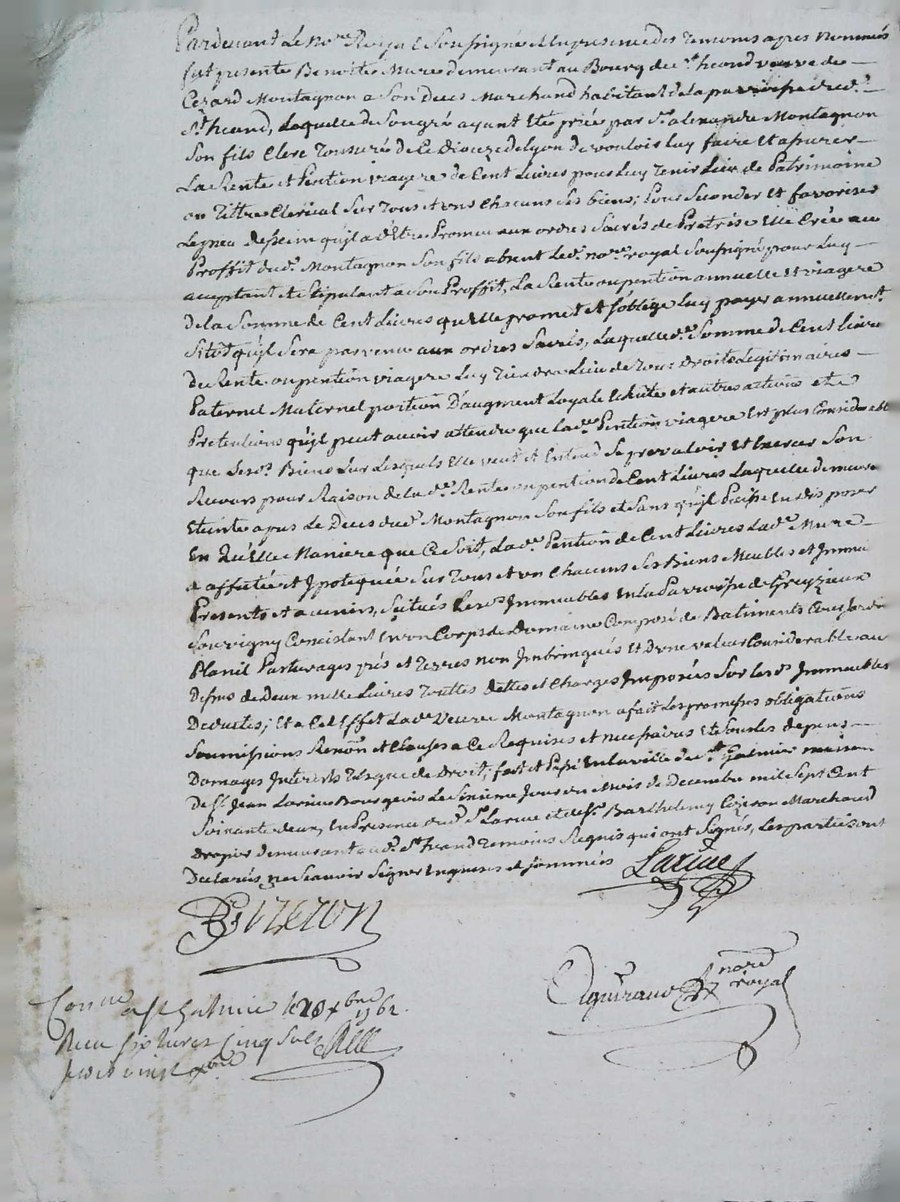 Pardevant Le no.re Royal Soussigné En presence des Temoins apres Nommés
fut presente Benoite Mure demeurant au Bourg de St heand veuve de
Cezard Montagnon a Son deces Marchand habitant de la parroisse dud.
St heand, Laquelle de Son gré ayant Eté priée par Sr alexandre Montagnon
Son fils Clerc Tonsuré de Ce Dioceze de Lyon de vouloir luy faire Et assurer
La Rente et Pention viagere de Cent Livres pour Luy Tenir Lieu de Patrimoine
ou Tittre Clerical Sur Tous et uns Chacuns Ses biens; Pour Seconder Et favoriser
Le pieu dessein qu'il a d'Etre Promeu aux ordres Sacrés de Pretrise Elle Crée au
Proffit dud. Montagnon Son fils absent Led. no.re royal Soussigné pour Luy
acceptant et Stipulant a Son Proffit, La Rente ou pention annuelle et viagere
de la Somme de Cent Livres qu'elle promet et S'oblige Luy payer annuellemt.
Sitôt qu'il Sera parvenu aux ordres Sacrés, Laquelle de. Somme de Cent Livres
de Rente ou pention viagere Luy Tiendra Lieu de Tous droits Legitimaires
Paternel Maternel portion D'augment Loyale Echute et autres actions et
Pretentions qu'il peut avoir attendu que lade. Pention viagere Est plus Considerable
que Sesd. Biens Sur Lesquels Elle veut et Entend Se prevaloir Et Exercer Son
Recours pour Raison de lade. Rente ou pention de Cent Livres Laquelle demeurera
Eteinte apres Le Deces dud. Montagnon Son fils et Sans qu'il Puisse En disposer
En Quelle Maniere que Ce Soit, Lade. Pention de Cent Livres Lade. Mure
a affectée et Ipotequée Sur Tous et un Chacuns Ses Biens Meubles et Immeu
Presents et avenirs, Scitués Lesd. Immeubles En la Parroisse de Greyzieux
Souvigny Concistant En un Corps de Domaine Composé de Batiments Cour Jardin
Planil Pasturages prés et Terres non Imbringués Et D'une valeur Considerable au
Dessus de Deux mille Livres Touttes dettes et Charges Imposées Sur lesd. Immeubles
Deduites; Et a Cet Effet Lade. Veuve Montagnon a fait Les promesses obligations
Soumissions Renon. et Clauses a Ce Requises et necessaires et Sous Les depens
Domages Interests Risque de Droit; fait et Passé En la ville de St Galmier maison
de Sr Jean Larive Bourgeois Le Sixieme Jour du Mois de Decembre mil Sept Cent
Soixante deux, En Presence dud. Sr Larive et de Sr Barthelemy Cizeron Marchand
Drapier demeurant aud. St heand Temoins Requis qui ont Signés, Les parties ont
Declarés ne Scavoir Signer Enquises et Sommées
Larive
Cizeron
no.re royal
Con.lé a St Galmie le 20 xbre 1762.
Recu six livres cinq sols